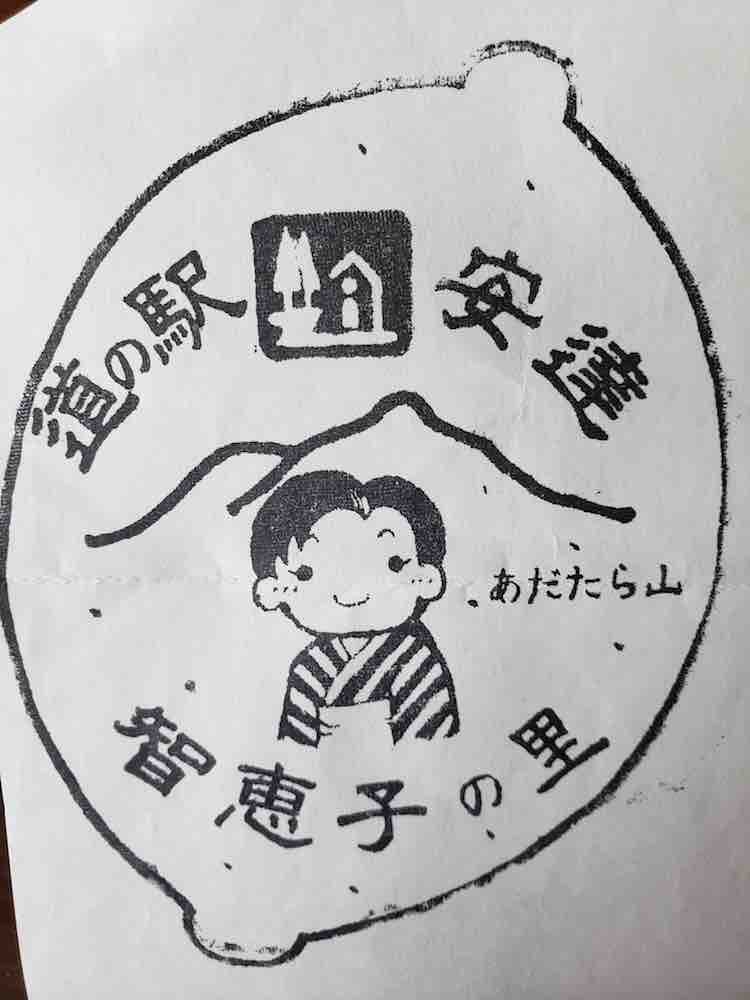 道の駅 安達
あだたら山
智恵子の里